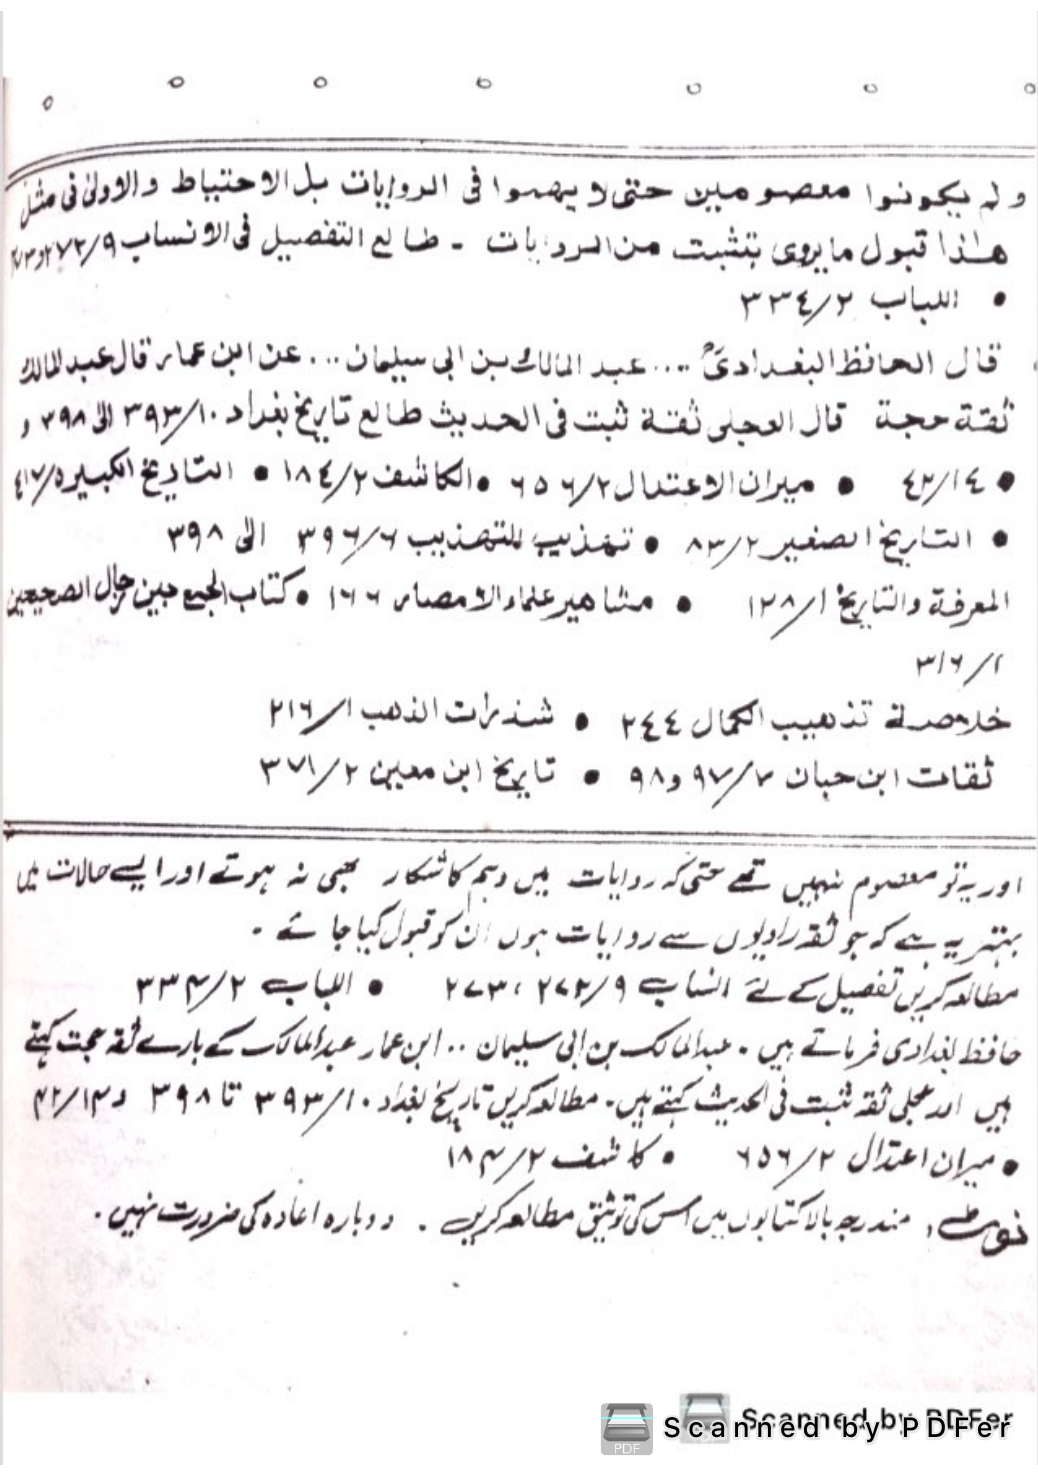 ولم يكونوا معصومين حتى لا يهموا فى الروايات بل الاحتياط والاولى فى مثل
هذا قبول ما يروى بتثبت من الروايات ۔ طالع التفصيل فى الانساب ٩/٢٧٢و٢٧٣
• اللباب ٢/٣٣٤
قال الحافظ البغدادىؒ .... عبد المالك بن ابى سليمان ... عن ابن عمار قال عبد المالك
ثقة حجة قال العجلى ثقة ثبت فى الحديث طالع تاريخ بغداد ١٠/٣٩٣ الى ٣٩٨ و
• ١٤/٤٢ • ميزان الاعتدال ٢/٦٥٦ • الكاشف ٢/١٨٤ • التاريخ الكبير ٥/٤١٧
• التاريخ الصغير ٢/٨٣ • تهذيب التهذيب ٦/٣٩٦ الى ٣٩٨
المعرفة والتاريخ ١/١٢٨ • مشاهير علماء الامصار ١٦٦ • كتاب الجمع بين رجال الصحيحين
١/٣١٦
خلاصة تذهيب الكمال ٢٤٤ • شذرات الذهب ١/٢١٦
ثقات ابن حبان ٧/٩٧ و٩٨ • تاريخ ابن معين ٢/٣٧١
اور یہ تو معصوم نہیں تھے حتی کہ روایات میں وہم کا شکار بھی نہ ہوتے اور ایسے حالات میں
بہتر یہ ہے کہ جو ثقہ راویوں سے روایات ہوں ان کو قبول کیا جائے ۔
مطالعہ کریں تفصیل کے لئے انساب ۹/۲۷۲ ، ۲۷۳ • اللباب ۲/۳۳۴
حافظ بغدادی فرماتے ہیں ۔ عبدالمالک بن ابی سلیمان .. ابن عمار عبدالمالک کے بارے ثقہ حجت کہتے
ہیں اور عجلی ثقہ ثبت فی الحدیث کہتے ہیں۔ مطالعہ کریں تاریخ بغداد ۱۰/۳۹۳ تا ۳۹۸ و ۱۴/۴۲
• میزان اعتدال ۲/۶۵۶ • کاشف ۲/۱۸۴
نوٹ، مندرجہ بالا کتابوں میں اس کی توثیق مطالعہ کریں ۔ دوبارہ اعادہ کی ضرورت نہیں ۔
Scanned by PDFer
Scanned by PDFer
PDF